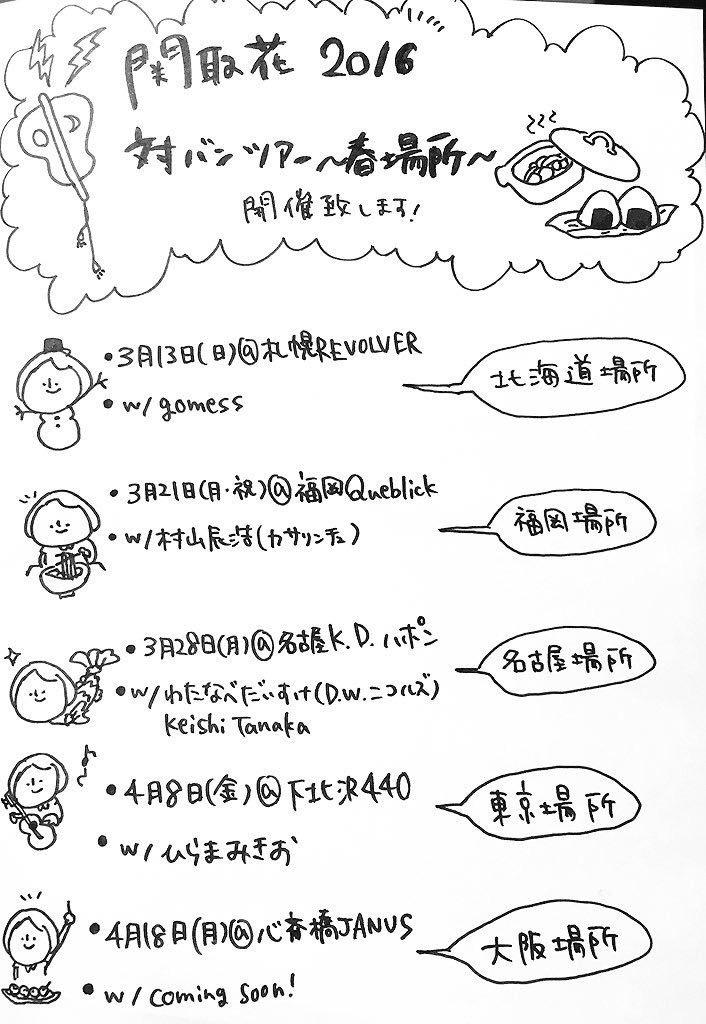 関取花 2016
対バンツアー〜春場所〜
開催致します!
・3月13日(日)@札幌REVOLVER
・w/ gomess
北海道場所
・3月21日(月・祝)@福岡Queblick
・w/村山辰浩(カサリンチュ)
福岡場所
・3月28日(月)@名古屋K.D.ハポン
・w/わたなべだいすけ(D.W.ニコルズ)
Keishi Tanaka
名古屋場所
・4月8日(金)@下北沢440
・w/ひらまみきお
東京場所
・4月18日(月)@心斎橋JANUS
・w/coming soon!
大阪場所